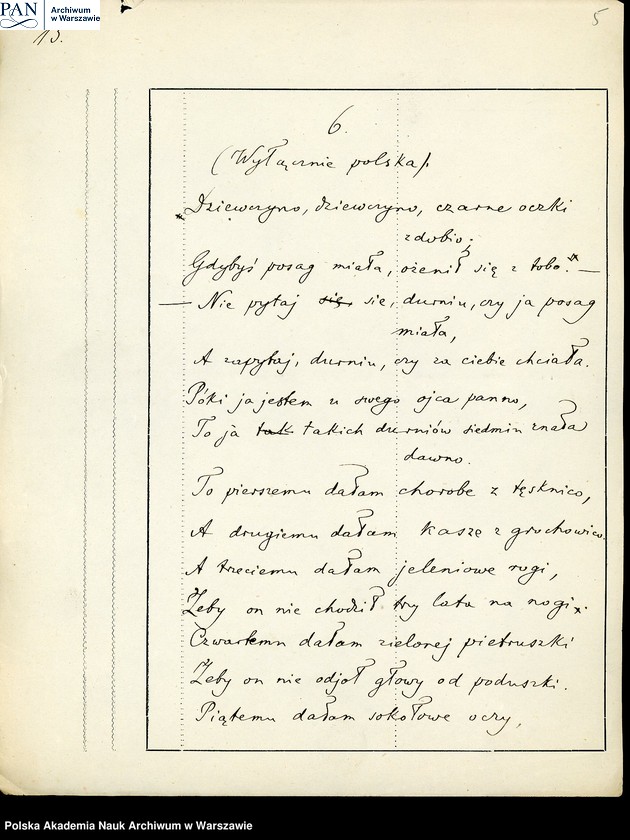 PAN
Archiwum
w Warszawie
5
13.
6.
(Wyłącznie polska).
Dziewczyno, dziewczyno, czarne oczki
zdobio;
Gdybyś posag miała, ożenił się z tobo." —
— Nie pytaj się, sie, durniu, czy ja posag
miała,
A zapytaj, durniu, czy za ciebie chciała.
Póki ja jestem u swego ojca panno,
To ja tak takich durniów siedmin znała
dawno.
To pierszemu dałam chorobe z tęsknico,
A drugiemu dałam kaszę z grochowico.
A trzeciemu dałam jeleniowe rogi,
Żeby on nie chodził try lata na nogi.
Czwartemu dałam zielonej pietruszki
Żeby on nie odjoł głowy od poduszki.
Piątemu dałam sokołowe oczy,
Polska Akademia Nauk Archiwum w Warszawie